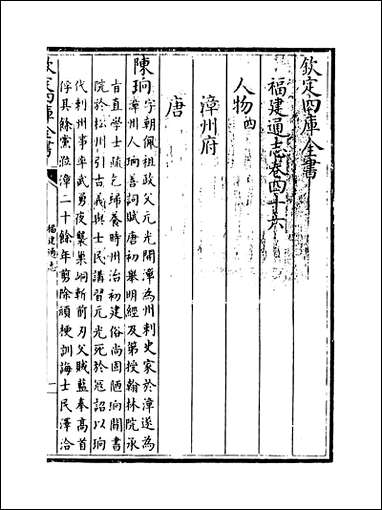 欽定四庫全書
福建通志卷四十六
人物四
漳州府
唐
陳珦字朝佩祖政父元光開漳為州刺史家於漳遂為
漳州人珦善詞賦唐初舉明經及第授翰林院承
旨直學士疏乞歸養時州治初建俗尚固陋珦開書
院於松州引古義與士民講習元光死於寇詔以珦
代刺州事率武勇夜襲巢峒斬前刃父賊藍奉高首
俘其餘黨涖漳二十餘年剪除頑梗訓誨士民澤洽
欽定四庫全書
福建通志
一